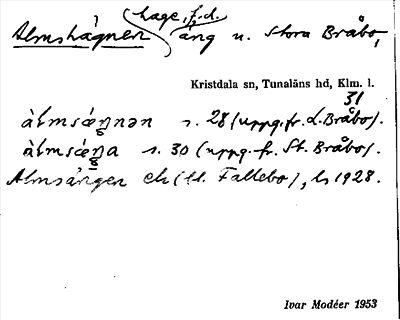 hage, f.d.
Almshägnen äng u. Stora Bråbo,
Kristdala sn, Tunaläns hd, Klm. l.
31
s. 28 (uppg. fr. L. Bråbo).
s. 30 (uppg. fr. St. Bråbo).
Almsängen ek (Ll. Fallebo), ls 1928.
Ivar Modéer 1953